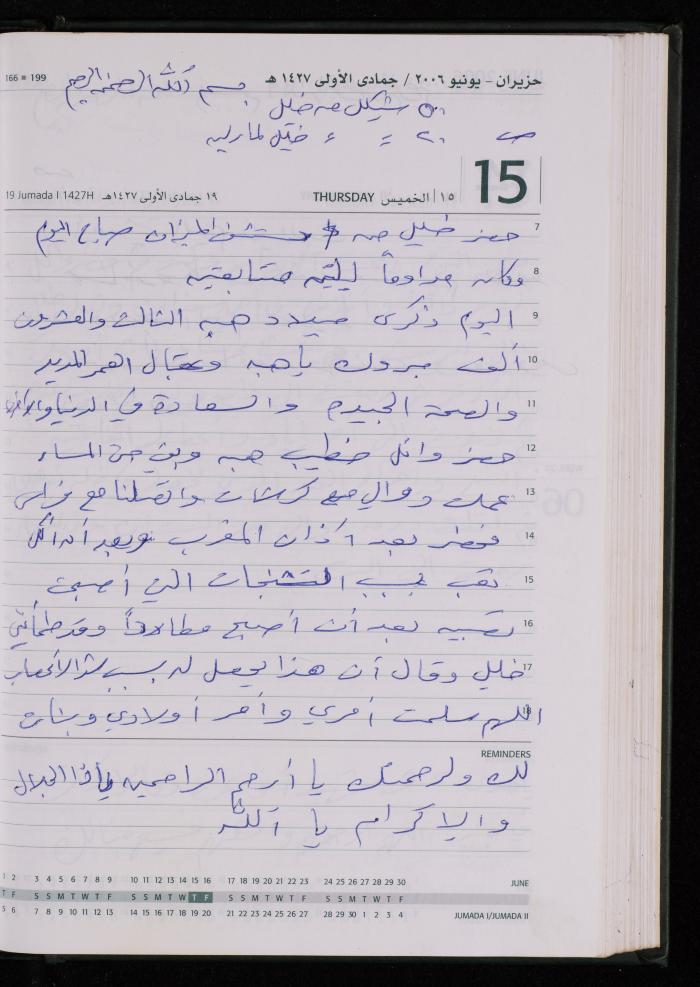 166 ■ 199
حزيران - يونيو ٢٠٠٦ / جمادى الأولى ١٤٢٧ هـ
بسم الله الرحمن الرحيم
٥٠ شيكل من خليل
٢٠ = خليل لمارلين
15
19 Jumada I 1427H ١٩ جمادى الأولى ١٤٢٧هـ THURSDAY ١٥ | الخميس
7 حضر خليل من مستشفى الميزان صباح اليوم
8 وكان مداوماً ليلتين متتابعتين
9 اليوم ذكرى ميلاد هبه الثالث والعشرون
10 ألف مبروك يا هبه وعقبال العمر المديد
11 والصحة الجيدة والسعادة في الدنيا والآخرة
12 حضر وائل خطيب هبه وبقي حتى المساء
13 عملت دوالي مع كرشات واتصلنا مع فراس
14 فحضر بعد آذان المغرب وبعد أن أكل
15 تعب بسبب التشنجات التي أصبحت
16 تصيبه بعد أن أصبح مطارداً وقد طمأنني
17 خليل وقال أن هذا يحصل له بسبب شد الأعصاب
18 اللهم سلمت أمري وأمر أولادي وبناتي
REMINDERS
لك ولرحمتك يا أرحم الراحمين يا ذا الجلال
والإكرام يا الله
1 2 3 4 5 6 7 8 9 10 11 12 13 14 15 16 17 18 19 20 21 22 23 24 25 26 27 28 29 30 JUNE
T F S S M T W T F S S M T W T F S S M T W T F S S M T W T F
5 6 7 8 9 10 11 12 13 14 15 16 17 18 19 20 21 22 23 24 25 26 27 28 29 30 1 2 3 4 JUMADA I/JUMADA II